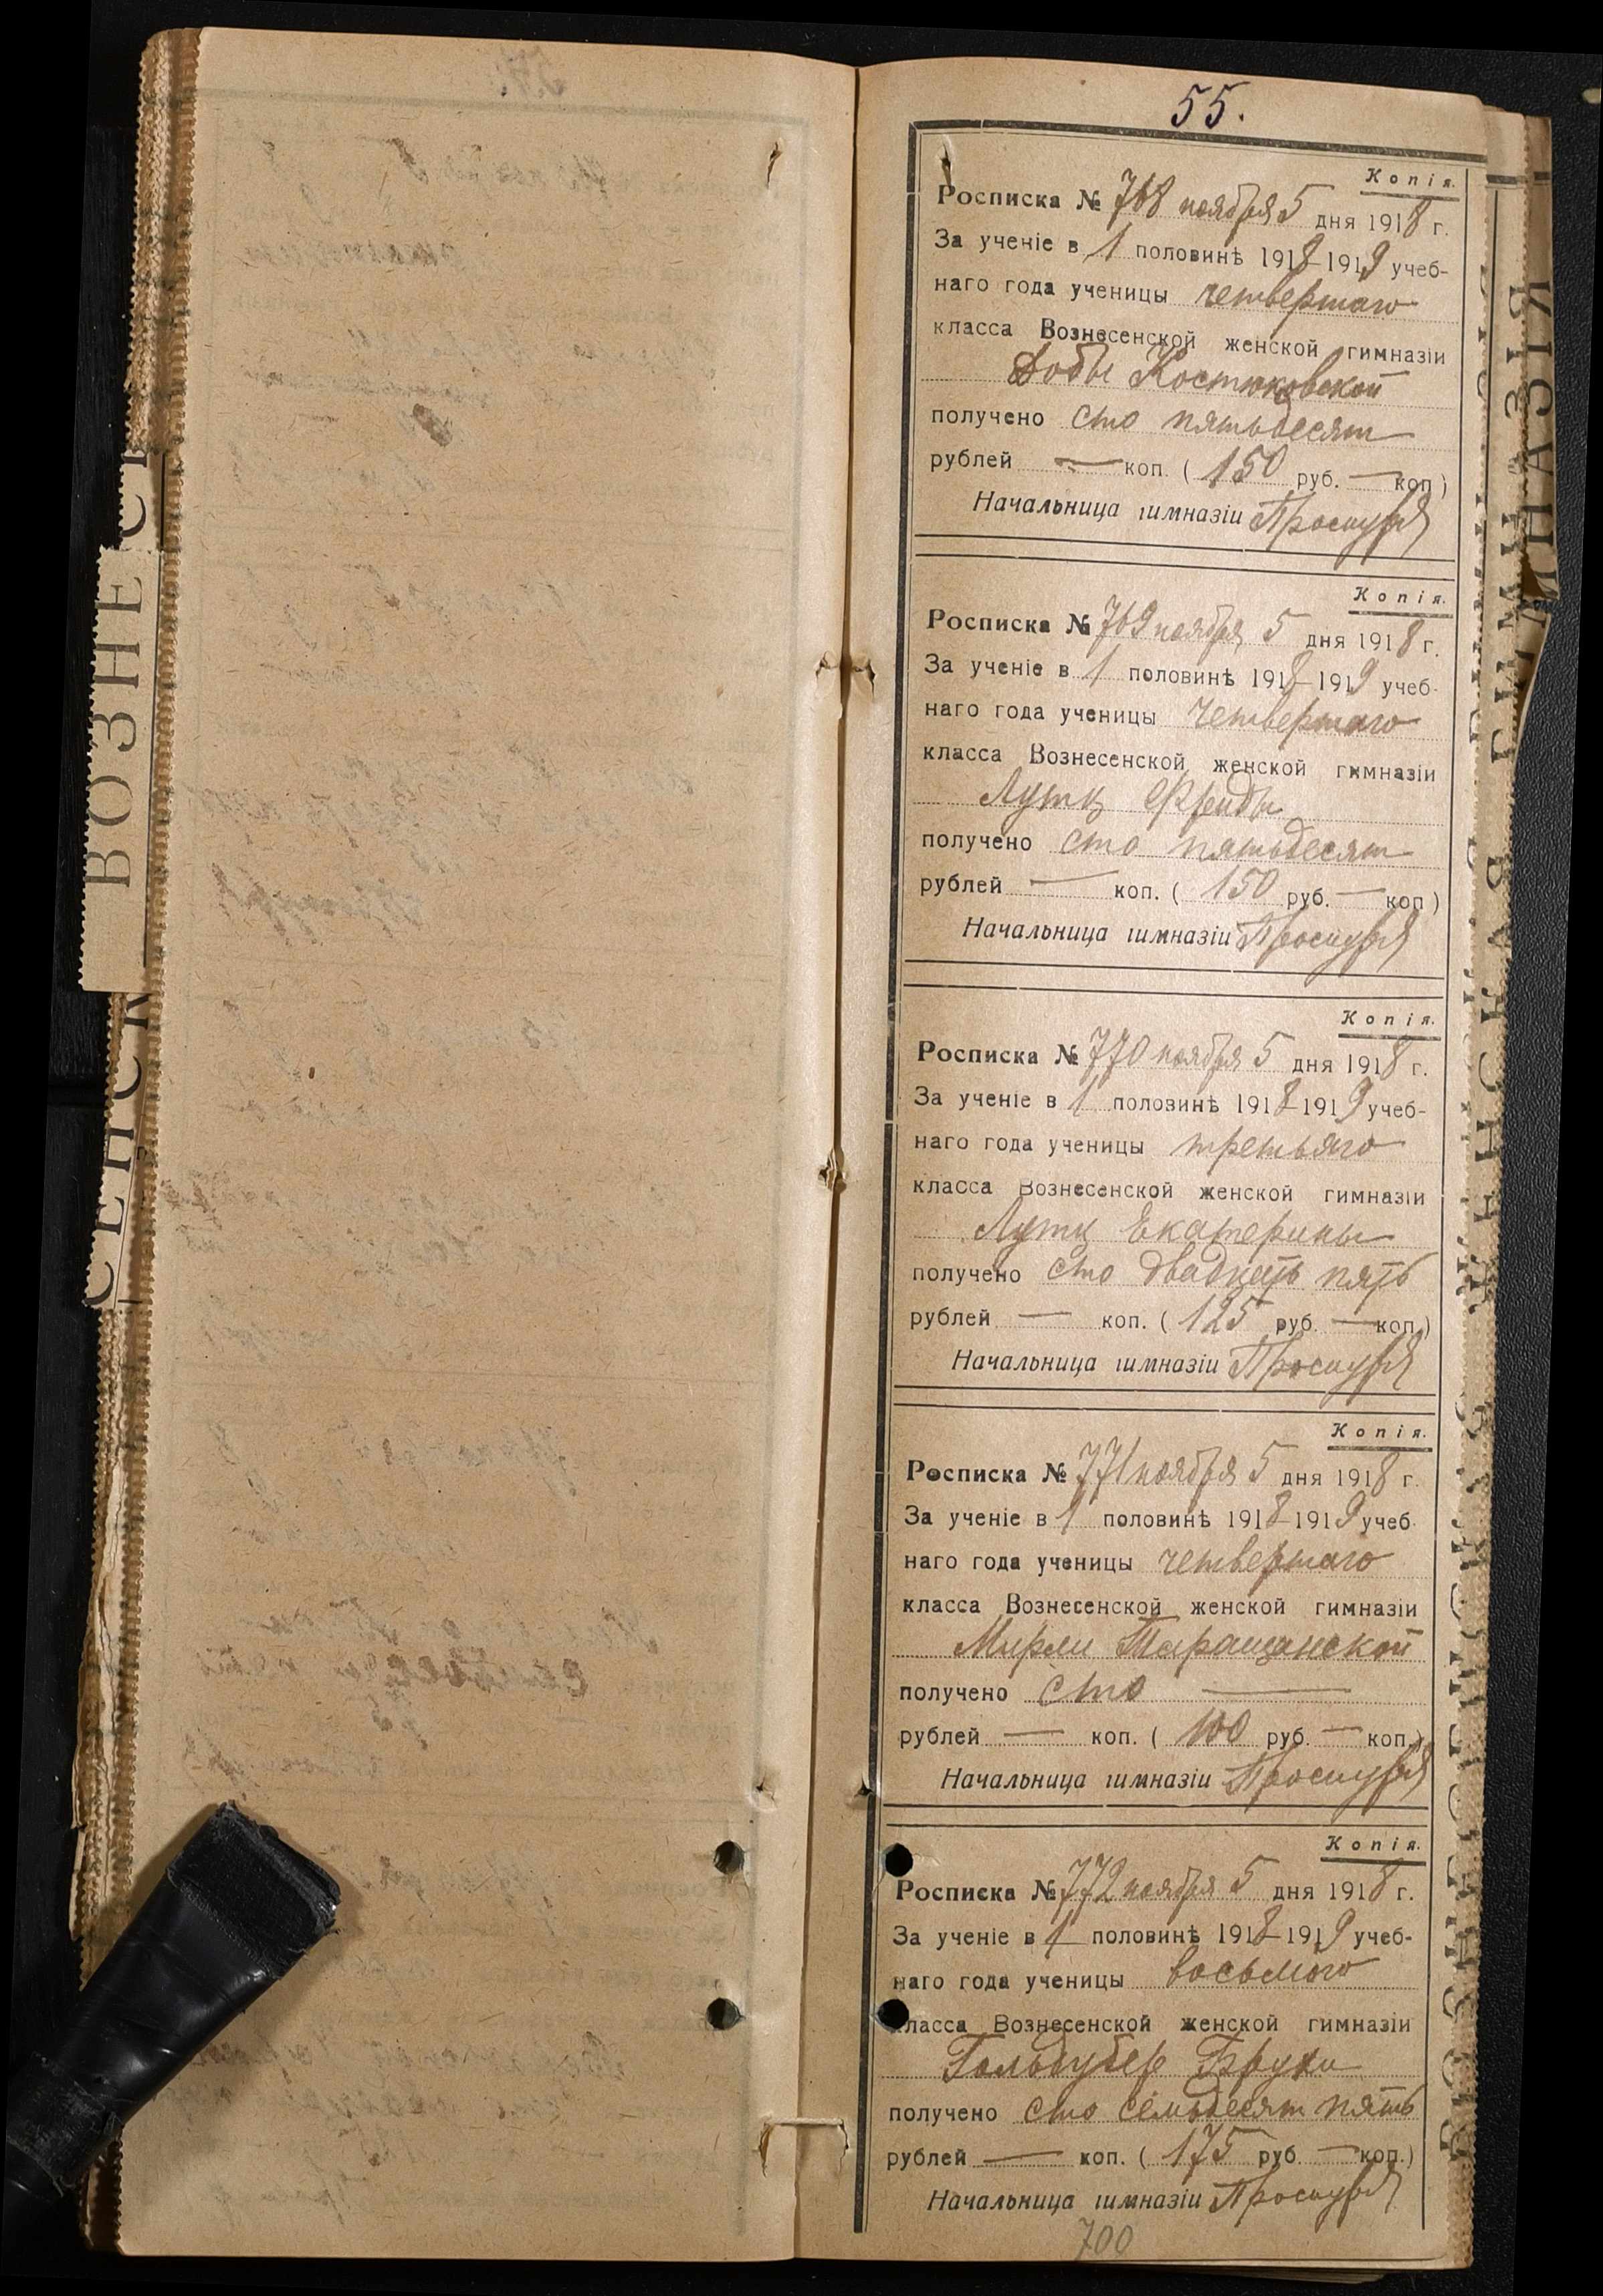 55.
Копія.
Росписка № 768 ноября 5 дня 1918 г.
За ученіе в 1 половинѣ 1918-1919 учеб-
наго года ученицы четвертаго
класса Вознесенской женской гимназіи
Добы Костюковской
получено сто пятьдесят
рублей — коп. ( 150 руб. — коп )
Начальница гимназіи
Копія.
Росписка № 769 ноября 5 дня 1918 г.
За ученіе в 1 половинѣ 1918-1919 учеб-
наго года ученицы четвертаго
класса Вознесенской женской гимназіи
Лутц Фриды
получено сто пятьдесят
рублей — коп. ( 150 руб. — коп )
Начальница гимназіи
Копія.
Росписка № 770 ноября 5 дня 1918 г.
За ученіе в 1 половинѣ 1918-1919 учеб-
наго года ученицы третьяго
класса Вознесенской женской гимназіи
Лутц Екатерины
получено сто двадцать пять
рублей — коп. ( 125 руб. — коп.)
Начальница гимназіи
Копія.
Росписка № 771 ноября 5 дня 1918 г.
За ученіе в 1 половинѣ 1918-1919 учеб
наго года ученицы четвертаго
класса Вознесенской женской гимназіи
Таращанской
получено сто —
рублей — коп. ( 100 руб. — коп.)
Начальница гимназіи
Копія.
Росписка № 772 ноября 5 дня 1918 г.
За ученіе в 1 половинѣ 1918-1919 учеб-
наго года ученицы восьмого
класса Вознесенской женской гимназіи
Брухи
получено сто семьдесят пять
рублей — коп. ( 175 руб. — коп.)
Начальница гимназіи
700
ВОЗНЕ